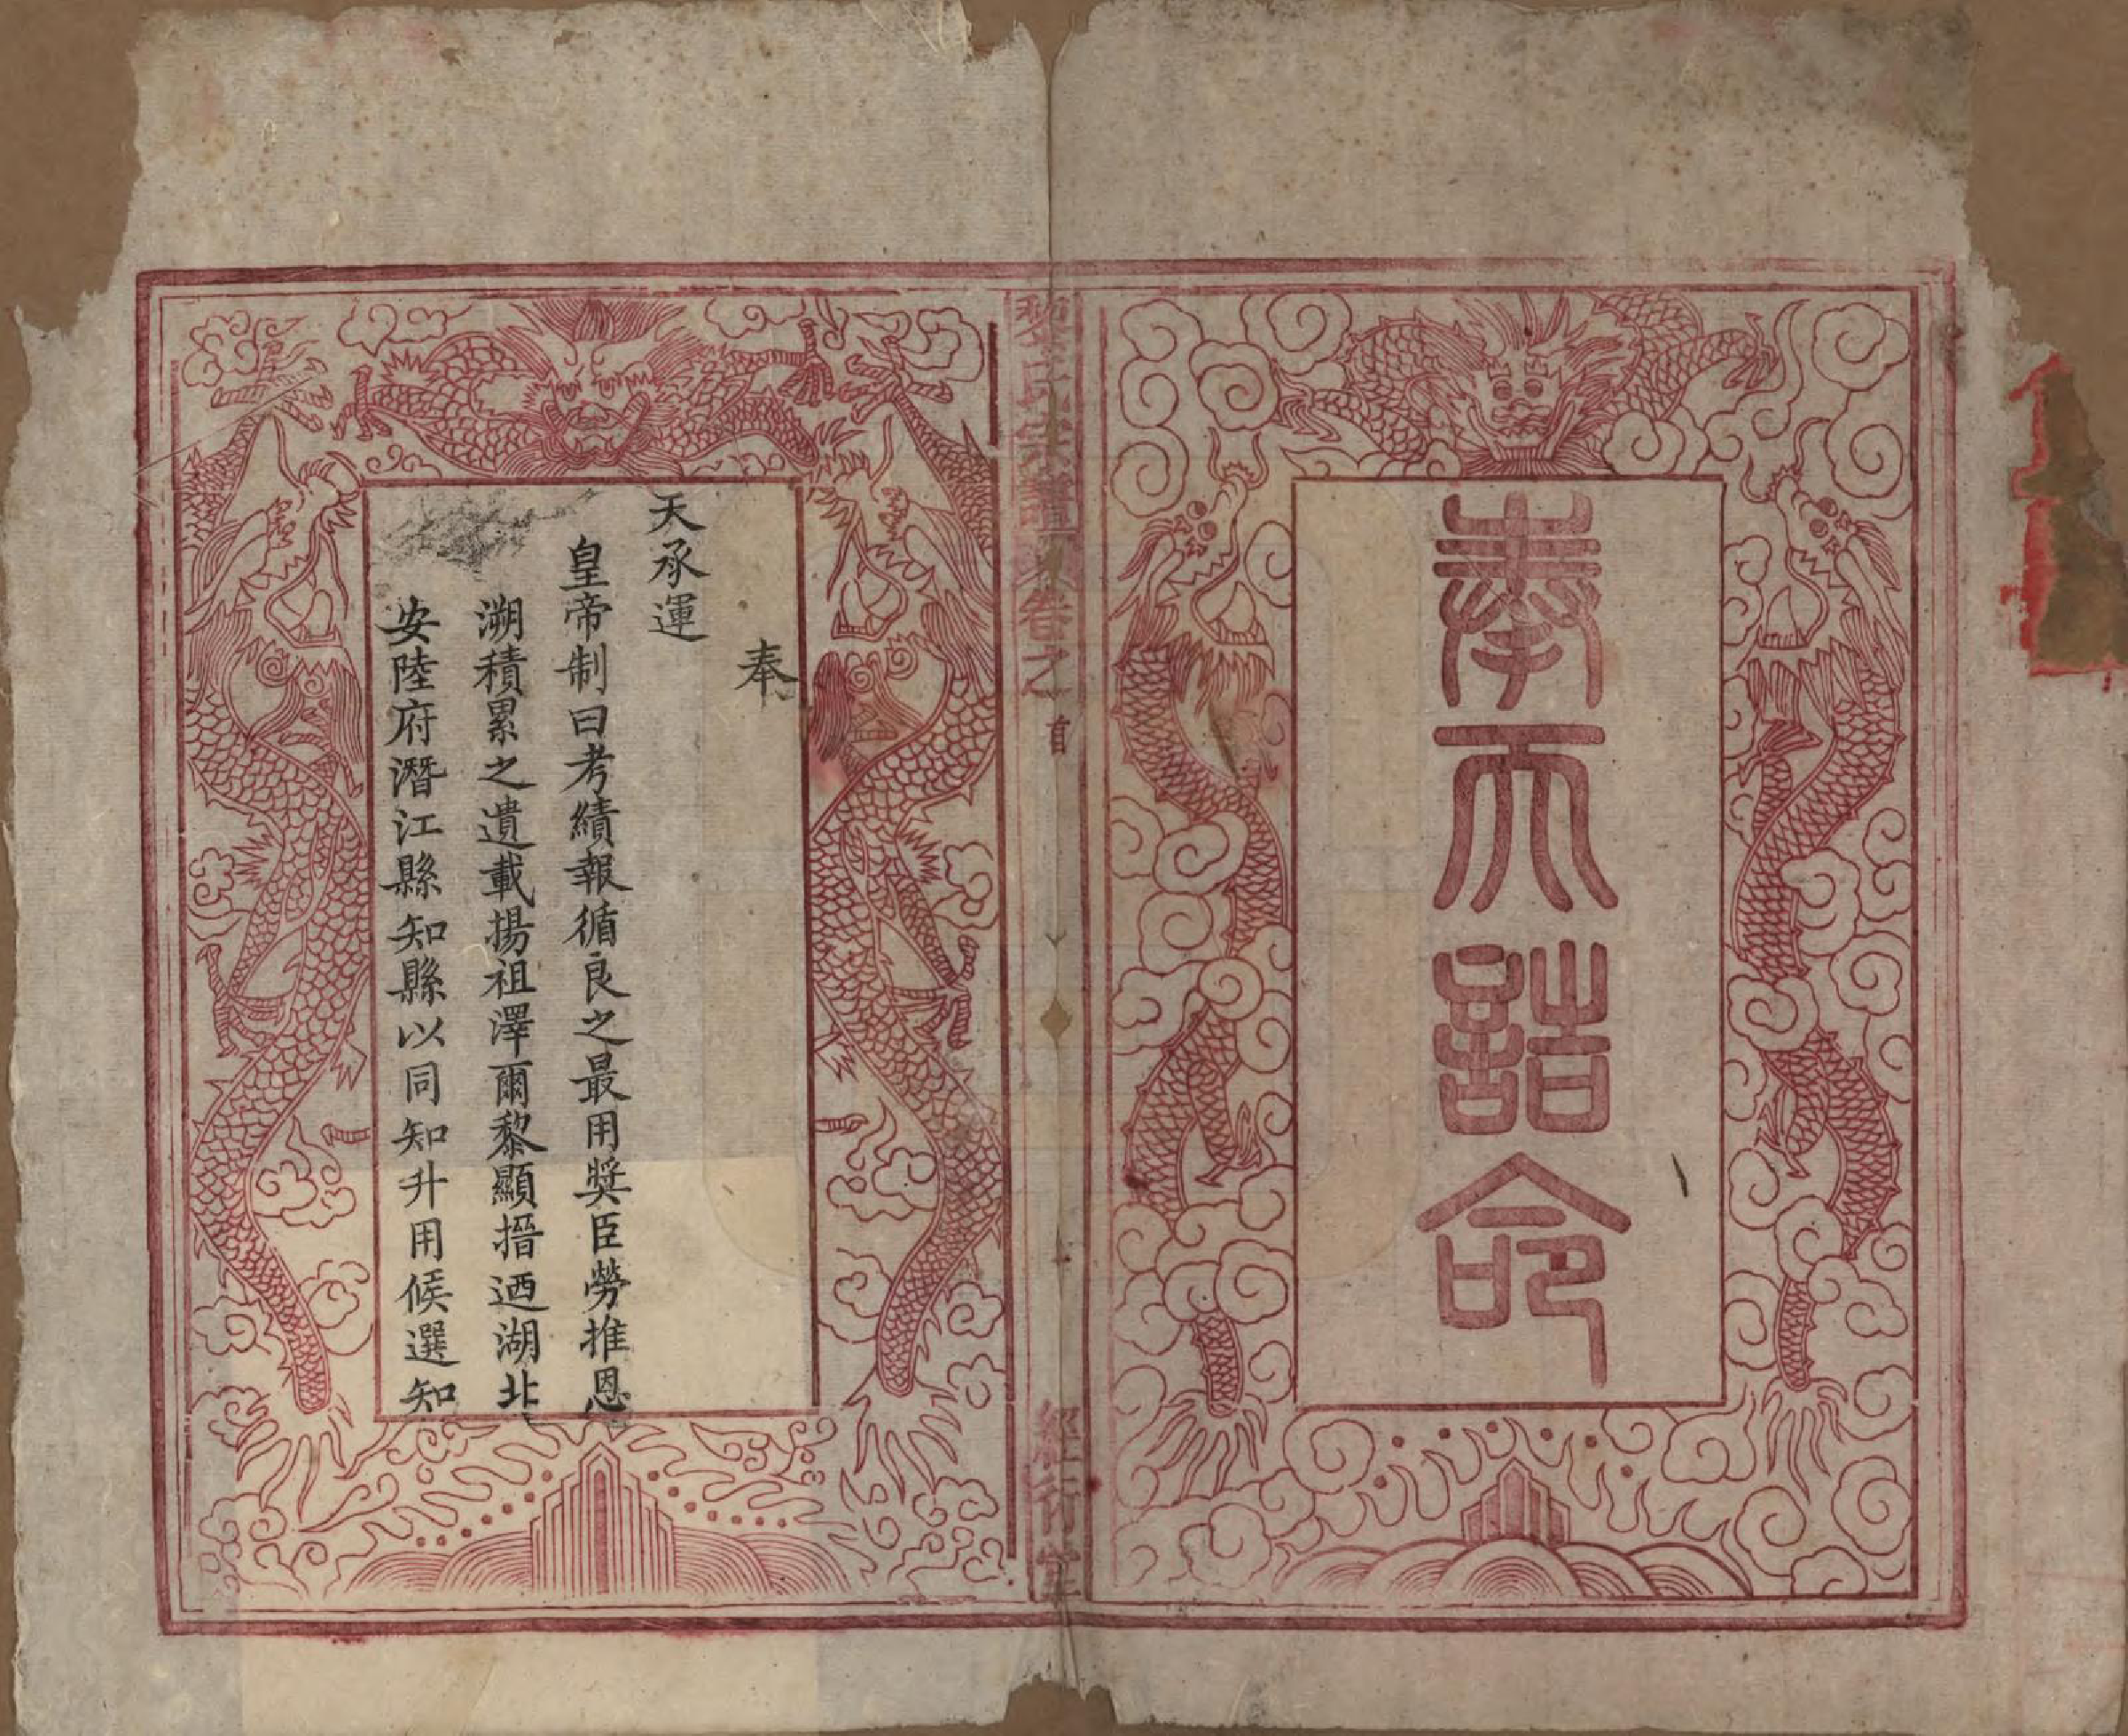 奉天誥命
黎氏宗譜 卷之首
經行堂
奉
天承運
皇帝制曰考績報循良之最用奬臣勞推恩
溯積累之遺載揚祖澤爾黎顯搢迺湖北
安陸府潛江縣知縣以同知升用候選知